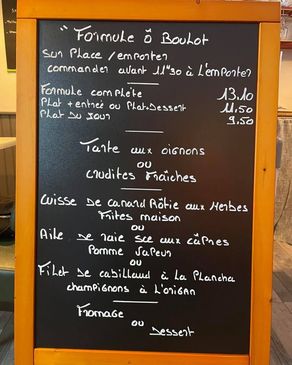 " Formule Ô Boulot
Sur Place / emporter
commander avant 11H30 à L'emporter
Formule complète 13.10
Plat + entrée ou Plat.Dessert 11.50
Plat Du Jour 9.50
Tarte aux oignons
ou
crudités Fraîches
Cuisse De Canard Rôtie aux Herbes
Frites maison
ou
Aile de raie sce aux câpres
Pomme Vapeur
ou
Filet de cabillaud à La Plancha
champignons à L'origan
Fromage
ou Dessert